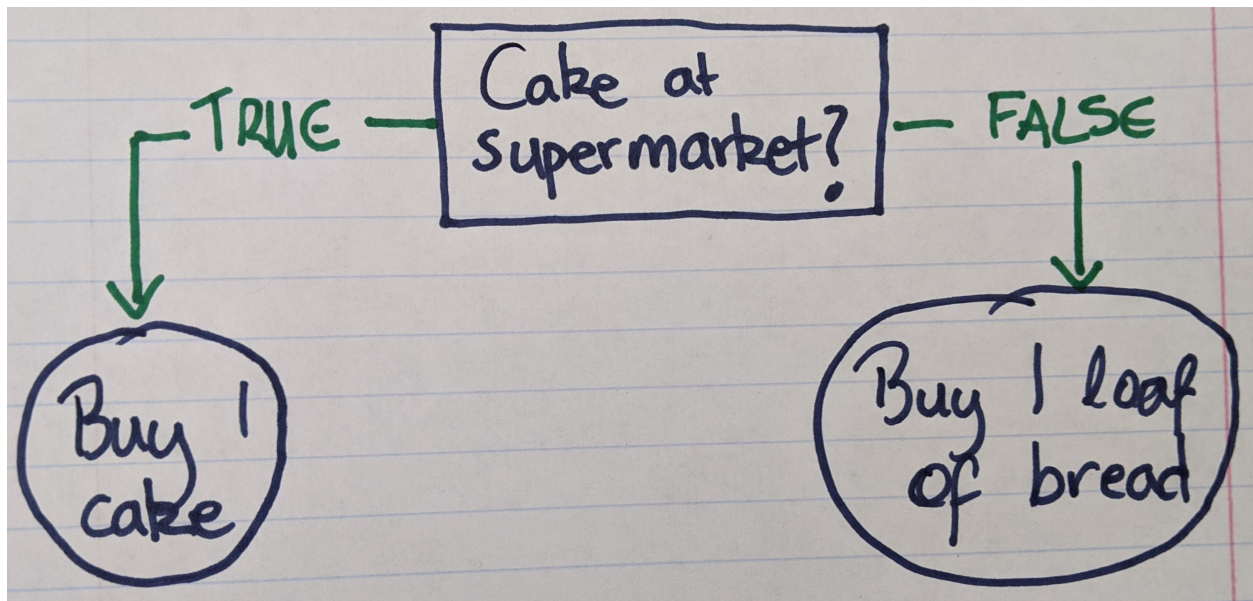 Cake at
supermarket?
TRUE
FALSE
Buy 1
cake
Buy 1 loaf
of bread